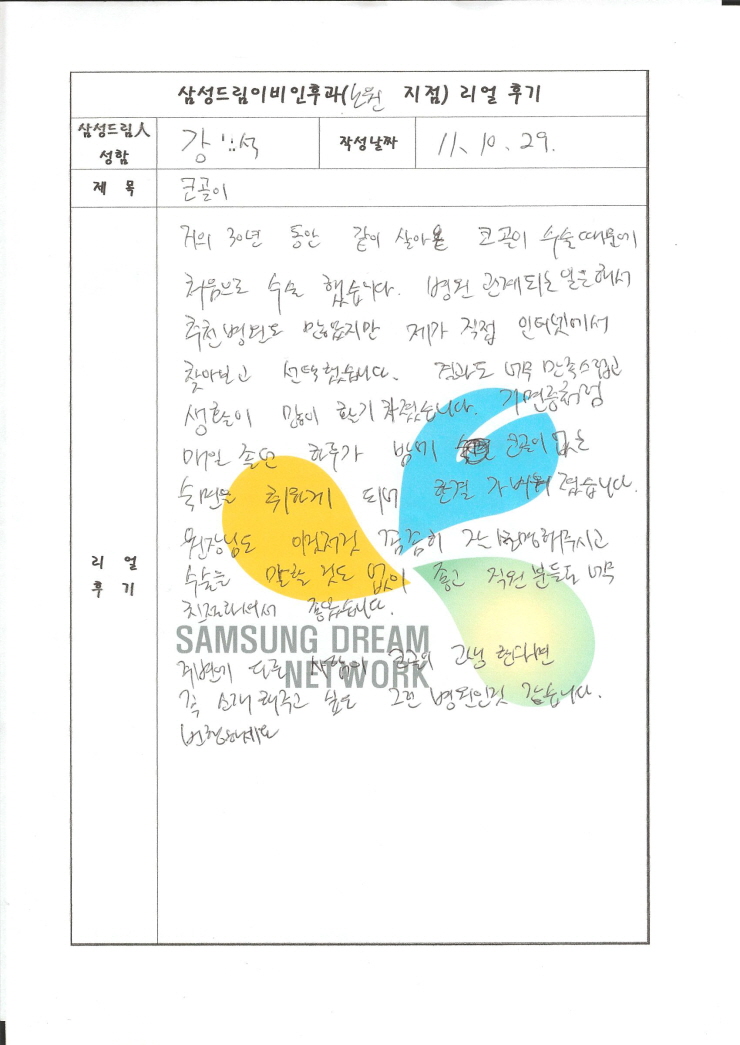 삼성드림이비인후과(노원 지점) 리얼 후기
삼성드림人 성함
강 석
작성날짜
11. 10. 29.
제 목
큰골이
거의 30년 동안 같이 살아온 코골이 수술때문에
처음으로 수술 했습니다. 병원 관계되는 일을해서
추천병원도 많았지만 제가 직접 인터넷에서
찾아보고 선택했습니다. 결과도 너무 만족스럽고
생활이 많이 활기 차졌습니다. 기면증처럼
매일 졸던 하루가 코골이 없는
숙면을 취하게 되어 한결 가벼워 졌습니다.
원장님도 이것저것 꼼꼼히 잘 설명해주시고
수술은 말할 것도 없이 좋고 직원 분들도 너무
친절하셔서 좋았습니다.
주변에 다른 사람이 코골이 고생 한다면
꼭 소개 해주고 싶은 그런 병원인것 같습니다.
번창하세요
리 얼 후 기
SAMSUNG DREAM
NETWORK